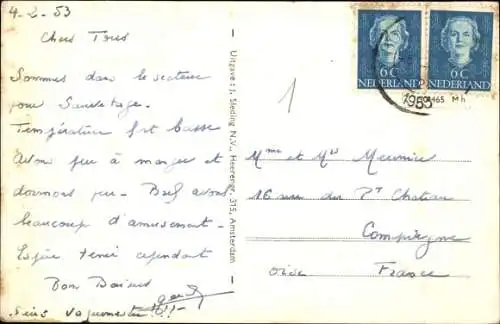 4-2-53
Chers Tous
Sommes dans le secteur
pour Sauvetage.
Température fort basse
Avons peu à manger et
dormons peu. Bref avons
beaucoup d'amusement.
Espère tenir cependant
Bon Baisers
Suis vaguemestre !!!
Uitgave: J. Sleding N.V., Heerengr. 315, Amsterdam
1
6 C
NEDERLAND
6 C
NEDERLAND
1953
Mme et Mr Meunier
16 rue du Pt Chateau
Compiegne
Oise France